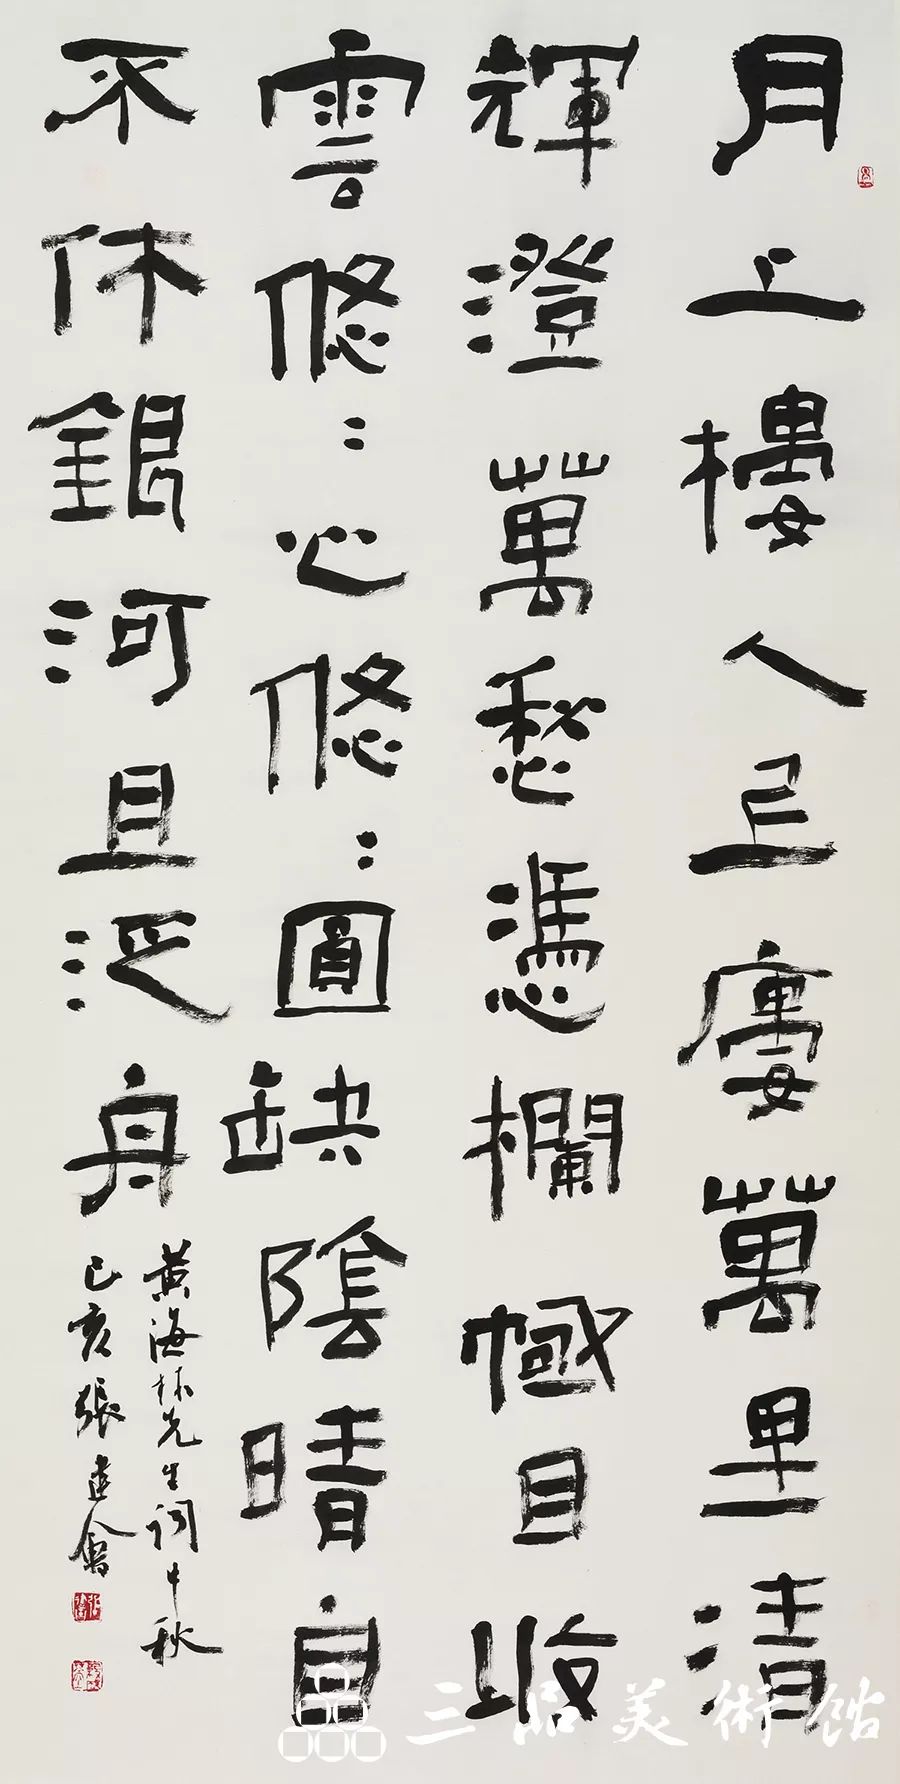 月上樓人廔萬里清
輝澄萬愁憑欄幗目收
雲悠〻心悠〻圓缺陰晴自
不休銀河且泛舟
黄海林先生詞中秋
己亥張建會
三品美術館